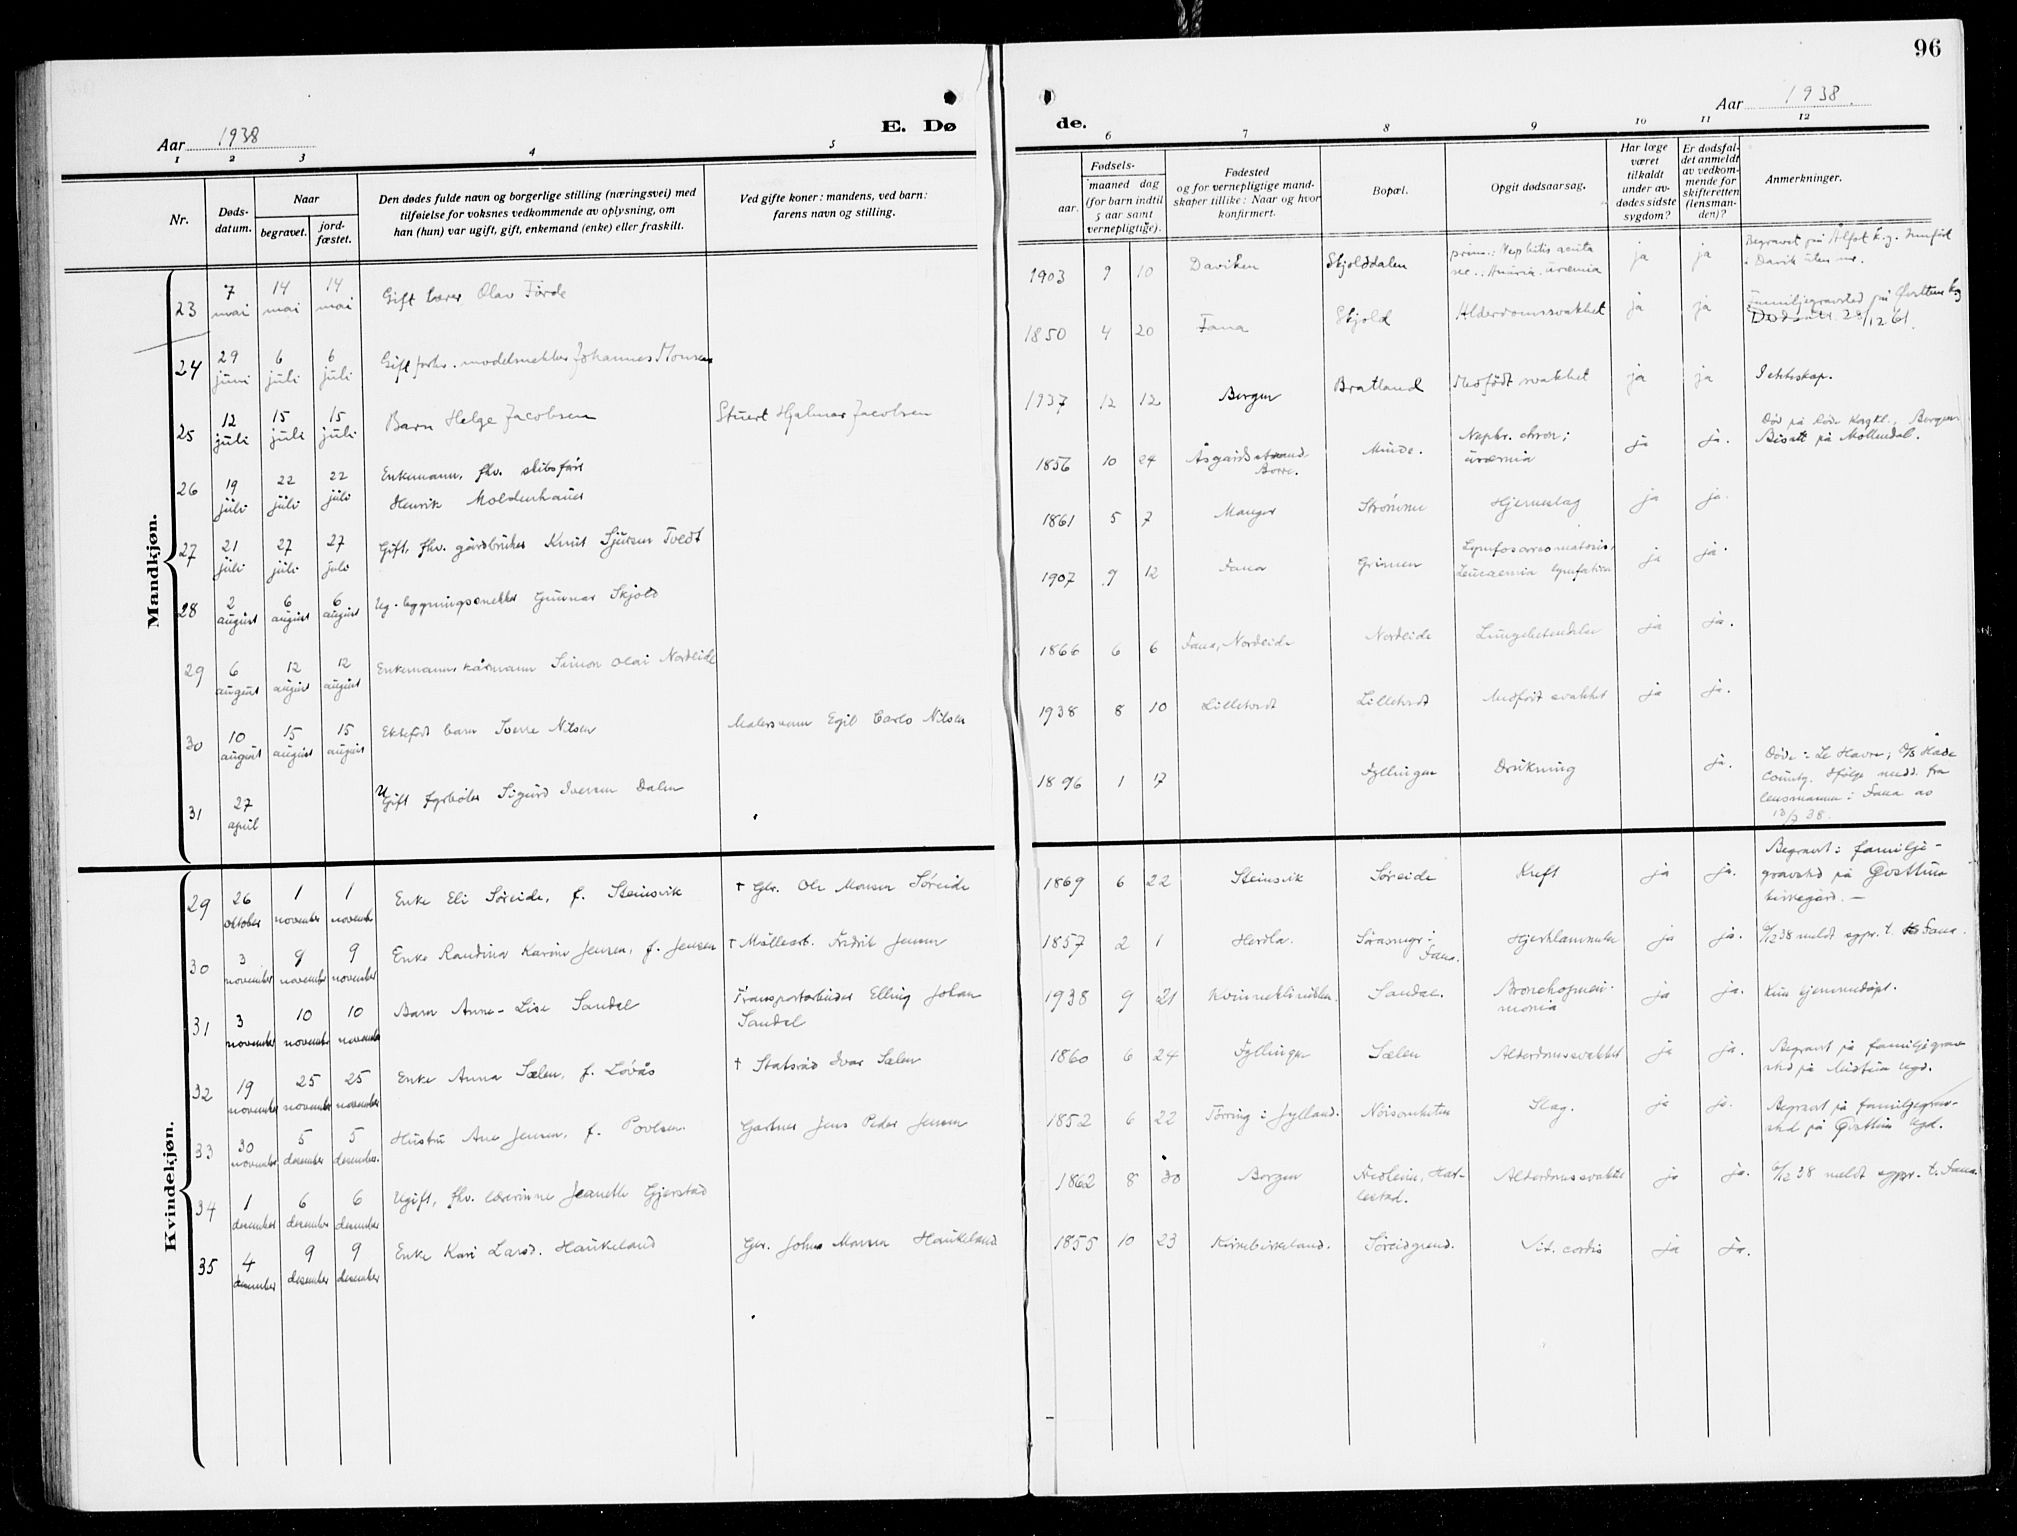 96
Aar 1938
E. Dø
de.
Aar 1938.
1 2 3 4 5 6 7 8 9 10 11 12
Nr.
Døds-
datum.
Naar
begravet.
jord-
fæstet.
Den dødes fulde navn og borgerlige stilling (næringsvei) med
tilføielse for voksnes vedkommende av oplysning, om
han (hun) var ugift, gift, enkemand (enke) eller fraskilt.
Ved gifte koner: mandens, ved barn:
farens navn og stilling.
Fødsels-
aar.
maaned dag
(for barn indtil
5 aar samt
vernepligtige).
Fødested
og for vernepligtige mand-
skaper tillike: Naar og hvor
konfirmert.
Bopæl.
Opgit dødsaarsag.
Har læge
været
tilkaldt
under av-
dødes sidste
sygdom?
Er dødsfal-
det anmeldt
av vedkom-
mende for
skifteretten
(lensman-
den)?
Anmerkninger.
Mandkjøn.
23 7 mai 14 mai 14 mai Gift lærer Olav Førde 1903 9 10 Daviken Skjolddalen prim.: Nephitis acuta
sec.: Anuria. uræmia ja ja Begravet på Ålfot k.g. Innført
i Davik uten nr.
24 29 juni 6 juli 6 juli Gift forhv. modelsnekker Johannes Monsen 1850 4 20 Fana Skjold Alderdomssvakhet ja ja Familjegravsted på Øvsttun kg
28/12 61.
25 12 juli 15 juli 15 juli Barn Helge Jacobsen Stuert Hjalmar Jacobsen 1937 12 12 Bergen Bratland Medfødt svakhet ja ja I ekteskap.
26 19 juli 22 juli 22 juli Enkemann, fhv. skibsfører
Henrik Moldenhauer 1856 10 24 Åsgårdstrand
Borre. Minde. Nephr. chron;
uræmia ja ja. Død på Røde Kors kl., Bergen
Bisatt på Møllendal.
27 21 juli 27 juli 27 juli Gift, fhv. gårdbruker Knut Sjursen Tvedt 1861 5 7 Manger Strømme Hjerneslag ja ja.
28 2 august 6 august 6 august Ug. bygningssnekker Gunnar Skjold 1907 9 12 Fana Grimen Lymfosarcomatosis,
Leucaemia lymfatica ja ja.
29 6 august 12 august 12 august Enkemann kårmann Simon Olai Nordeide 1866 6 6 Fana, Nordeide Nordeide Lungebetendelse ja ja.
30 10 august 15 august 15 august Ektefødt barn Sverre Nilsen Malersvenn Egil Carlo Nilsen 1938 8 10 Lilletvedt Lilletvedt Medfødt svakhet ja ja.
31 27 april Ugift fyrbøter Sigurd Iversen Dalen 1896 1 17 Fyllingen Drukning ja. Døde i Le Havre, D/S
County. Ifølge medd. fra
lensmannen i Fana av
13/7 38.
Kvindekjøn.
29 26 oktober 1 november 1 november Enke Eli Søreide, f. Steinsvik † Gbr. Ole Monsen Søreide 1869 6 22 Steinsvik Søreide Kreft ja ja. Begravet i familje-
gravsted på Øvsttun
kirkegård. —
30 3 november 9 november 9 november Enke Randina Karine Jensen, f. Jensen † Møllearb. Fredrik Jensen 1857 2 1 Herdla. Søråsmyr i
Fana. Hjerklammer ja ja. 6/12 38 meldt sgpr. t. Fana.
31 3 november 10 november 10 november Barn Anne-Lise Sandal Transportarbeider Elling Johan
Sandal 1938 9 21 Kvinneklinikken. Sandal. Bronchopneu-
monia ja ja. Kun hjemmedøpt.
32 19 november 25 november 25 november Enke Anna Sælen, f. Løvås † Statsråd Ivar Sælen 1860 6 24 Fyllingen Sælen Alderdomssvakhet ja ja. Begravet på familjegrav-
sted på kgd.
33 30 november 5 desember 5 desember. Hustru Ane Jensen, f. Povlsen. Gartner Jens Peder Jensen 1852 6 22 Tørring i Jylland. Slag. ja ja. Begravet på familjegrav-
sted på Øvsttun kgd.
34 1 desember 6 desember 6 desember Ugift, fhv. lærerinne Jeanette Gjerstad 1862 8 30 Bergen Fredheim, Hat-
lestad. Alderdomssvakhet ja ja. 6/12 38 meldt sgpr. t. Fana.
35 4 desember 9 desember 9 desember Enke Kari Larsd. Haukeland Gbr. Johs Monsen Haukeland 1855 10 23 Kirkebirkeland. Søreidgrend. Vit. cordis ja ja.